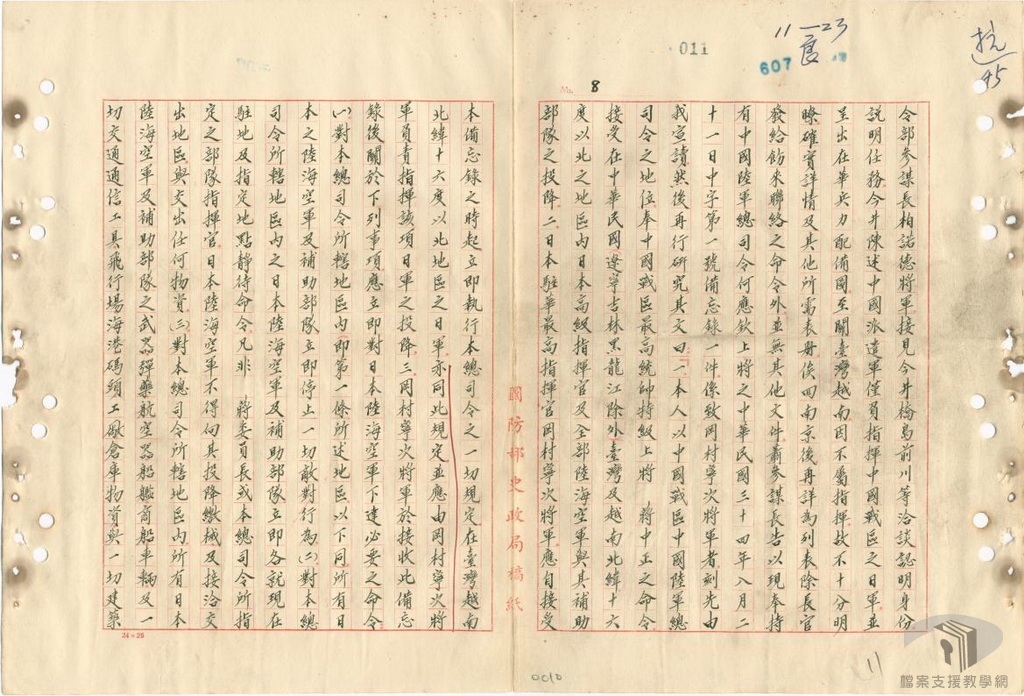 11—23
011
607
No. 8
令部參謀長柏諾德將軍接見今井橋島前川等洽談認明身份
說明任務今井陳述中國派遣軍僅負指揮中國戰區之日軍並
呈出在華兵力配備圖至關臺灣越南因不屬指揮故不十分明
瞭確實詳情及其他所需表冊俟回南京後再詳為列表除長官
發給飭來聯絡之命令外並無其他文件蕭參謀長告以現奉持
有中國陸軍總司令何應欽上將之中華民國三十四年八月二
十一日中字第一號備忘錄一件係致岡村寧次將軍者刻先由
我宣讀然後再行研究其文曰一本人以中國戰區中國陸軍總
司令之地位奉中國戰區最高統帥特級上將 蔣中正之命令
接受在中華民國遼寧吉林黑龍江除外臺灣及越南北緯十六
度以北之地區內日本高級指揮官及全部陸海空軍與其補助
部隊之投降二日本駐華最高指揮官岡村寧次將軍應自接受
國防部史政局稿紙
本備忘錄之時起立即執行本總司令之一切規定在臺灣越南
北緯十六度以北地區之日軍亦同此規定並應由岡村寧次將
軍負責指揮該項日軍之投降三岡村寧次將軍於接收此備忘
錄後關於下列事項應立即對日本陸海空軍下達必要之命令
㈠對本總司令所轄地區內即第一條所述地區以下同所有日
本之陸海空軍及補助部隊立即停止一切敵對行為㈡對本總
司令所轄地區內之日本陸海空軍及補助部隊立即各就現在
駐地及指定地點靜待命令凡非 蔣委員長或本總司令所指
定之部隊指揮官日本陸海空軍不得向其投降繳械及接洽交
出地區與交出任何物資㈢對本總司令所轄地區內所有日本
陸海空軍及補助部隊之武器彈藥航空器船艦商船車輛及一
切交通通信工具飛行場海港碼頭工廠倉庫物資與一切建築
24×25
0010
11
檔案支援教學網